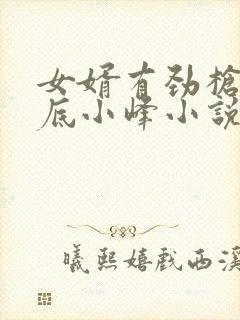 女婿有劲槍
底小峰小説
曦熙嬉戲西溪